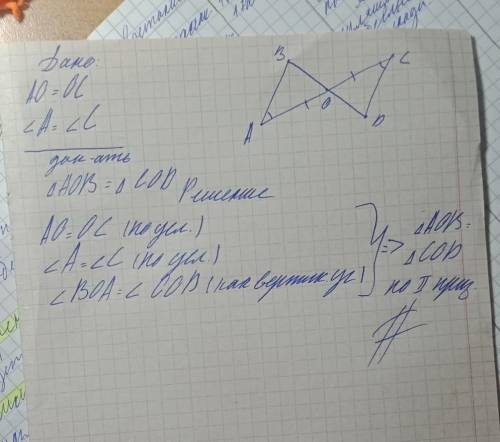 Дано:
AO = OC
∠A = ∠C
док-ать
△AOB = △COD
Решение
AO = OC (по усл.)
∠A = ∠C (по усл.)
∠BOA = ∠COD (как вертик. уг.)
=> △AOB =
△COD
по II приз.
B
C
O
A
D